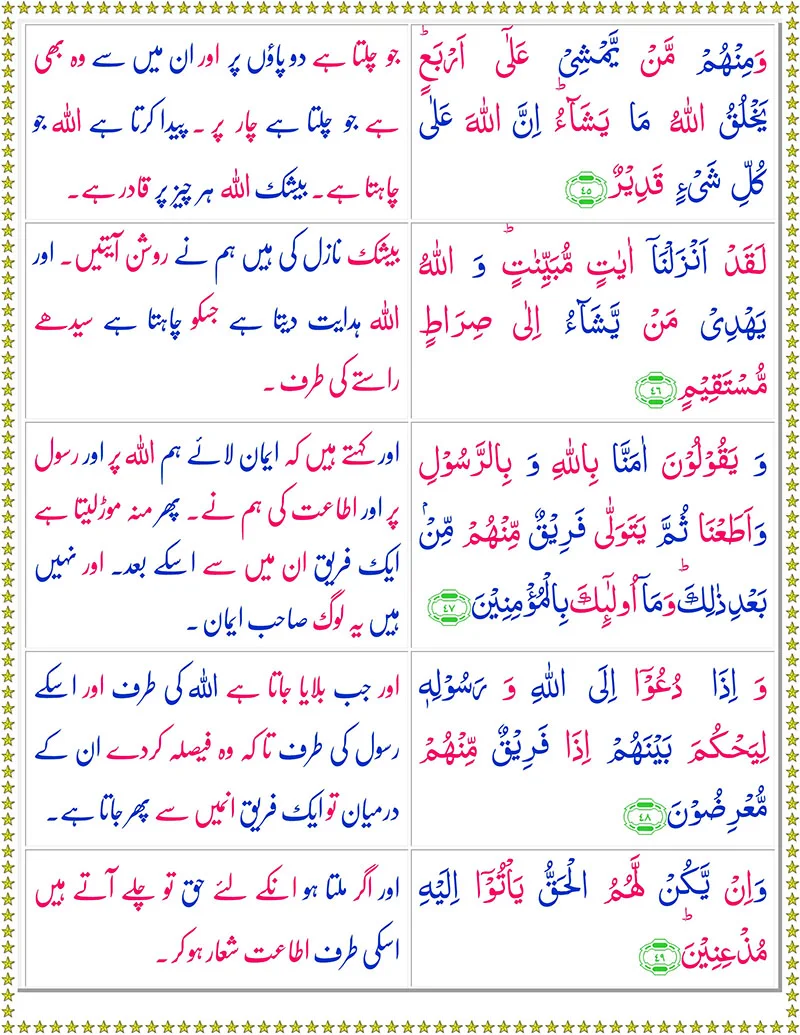 وَمِنْهُمْ مَّنْ يَّمْشِىْ عَلٰٓى اَرْبَعٍ ؕ
يَخْلُقُ اللهُ مَا يَشَآءُ ؕ اِنَّ اللهَ عَلٰى
كُلِّ شَىْءٍ قَدِيْرٌ ۝۴۵
جو چلتا ہے دو پاؤں پر اور ان میں سے وہ بھی
ہے جو چلتا ہے چار پر ۔ پیدا کرتا ہے اللہ جو
چاہتا ہے۔ بیشک اللہ ہر چیز پر قادر ہے۔
لَقَدْ اَنْزَلْنَاۤ اٰيٰتٍ مُّبَيِّنٰتٍ ؕ وَ اللهُ
يَهْدِىْ مَنْ يَّشَآءُ اِلٰى صِرَاطٍ
مُّسْتَقِيْمٍ ۝۴۶
بیشک نازل کی ہیں ہم نے روشن آیتیں۔ اور
اللہ ہدایت دیتا ہے جسکو چاہتا ہے سیدھے
راستے کی طرف ۔
وَ يَقُوْلُوْنَ اٰمَنَّا بِاللهِ وَ بِالرَّسُوْلِ
وَاَطَعْنَا ثُمَّ يَتَوَلّٰى فَرِيْقٌ مِّنْهُمْ مِّنْۢ
بَعْدِ ذٰلِكَ ؕ وَمَاۤ اُولٰٓئِكَ بِالْمُؤْمِنِيْنَ ۝۴۷
اور کہتے ہیں کہ ایمان لائے ہم اللہ پر اور رسول
پر اور اطاعت کی ہم نے۔ پھر منہ موڑلیتا ہے
ایک فریق ان میں سے اسکے بعد۔ اور نہیں
ہیں یہ لوگ صاحب ایمان ۔
وَ اِذَا دُعُوْۤا اِلَى اللهِ وَ رَسُوْلِهٖ
لِيَحْكُمَ بَيْنَهُمْ اِذَا فَرِيْقٌ مِّنْهُمْ
مُّعْرِضُوْنَ ۝۴۸
اور جب بلایا جاتا ہے اللہ کی طرف اور اسکے
رسول کی طرف تاکہ وہ فیصلہ کردے ان کے
درمیان تو ایک فریق انمیں سے پھر جاتا ہے۔
وَاِنْ يَّكُنْ لَّهُمُ الْحَقُّ يَاْتُوْۤا اِلَيْهِ
مُذْعِنِيْنَ ؕ ۝۴۹
اور اگر ملتا ہو انکے لئے حق تو چلے آتے ہیں
اسکی طرف اطاعت شعار ہوکر ۔